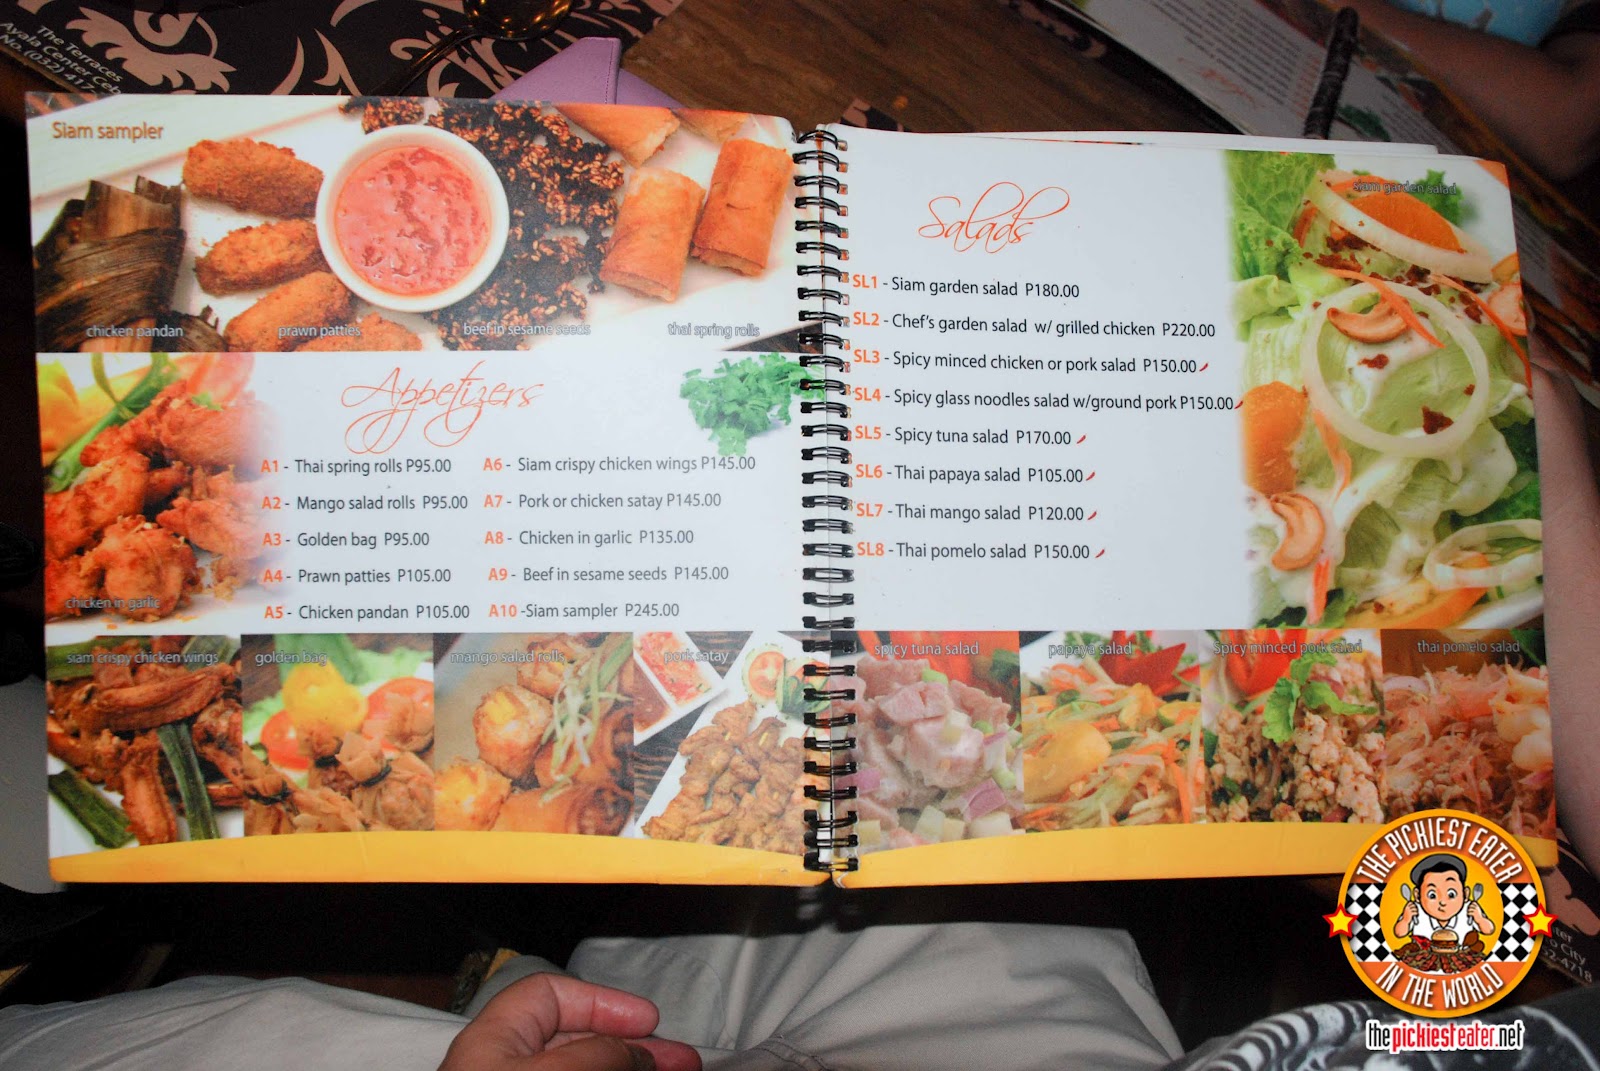 The Terraces
Ayala Center Ceb
No. (032) 417-
Siam sampler
chicken pandan
prawn patties
beef in sesame seeds
thai spring rolls
Appetizers
A1 - Thai spring rolls P95.00
A2 - Mango salad rolls P95.00
A3 - Golden bag P95.00
A4 - Prawn patties P105.00
A5 - Chicken pandan P105.00
A6 - Siam crispy chicken wings P145.00
A7 - Pork or chicken satay P145.00
A8 - Chicken in garlic P135.00
A9 - Beef in sesame seeds P145.00
A10 -Siam sampler P245.00
chicken in garlic
siam crispy chicken wings
golden bag
mango salad rolls
pork satay
Salads
siam garden salad
SL1 - Siam garden salad P180.00
SL2 - Chef's garden salad w/ grilled chicken P220.00
SL3 - Spicy minced chicken or pork salad P150.00
SL4 - Spicy glass noodles salad w/ground pork P150.00
SL5 - Spicy tuna salad P170.00
SL6 - Thai papaya salad P105.00
SL7 - Thai mango salad P120.00
SL8 - Thai pomelo salad P150.00
spicy tuna salad
papaya salad
Spicy minced pork salad
thai pomelo salad
THE PICKIEST EATER
IN THE WORLD
thepickiesteater.net